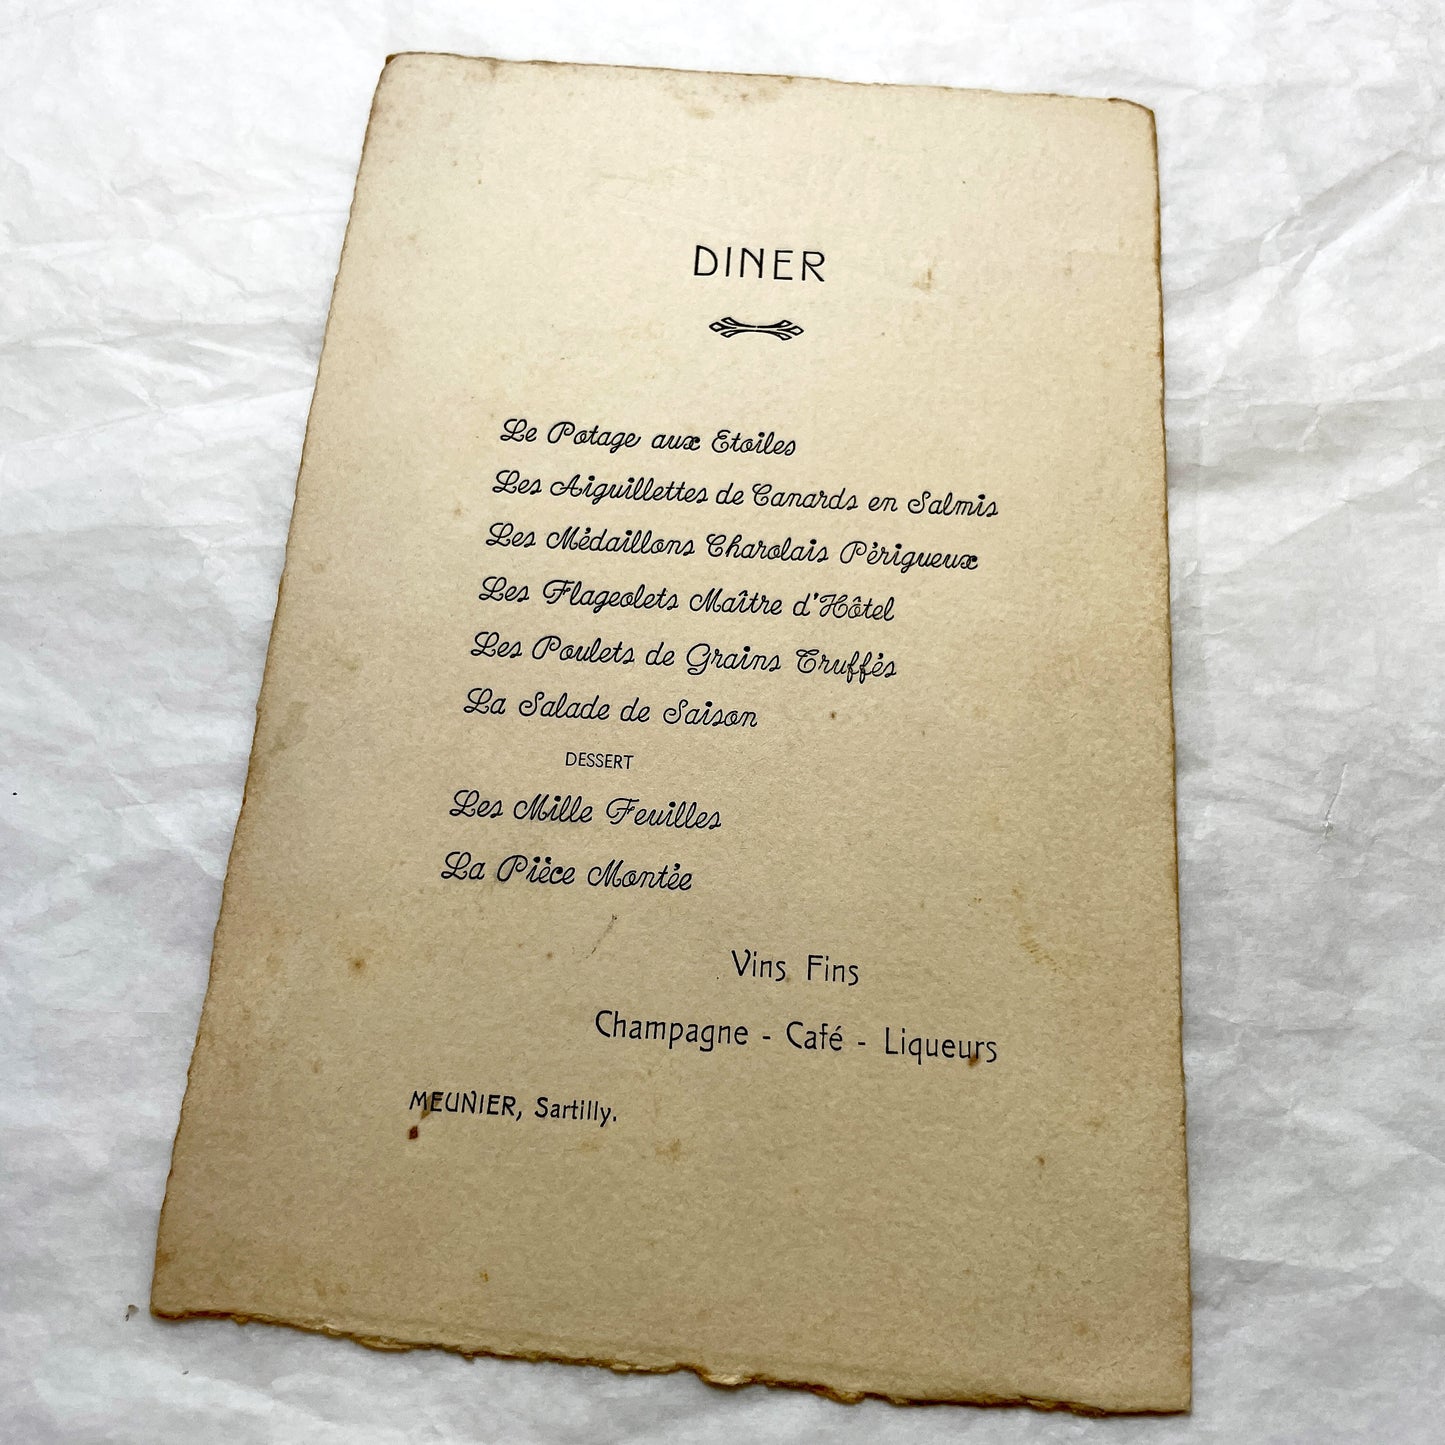 DINER
Le Potage aux Etoiles
Les Aiguillettes de Canards en Salmis
Les Médaillons Charolais Périgueux
Les Flageolets Maître d'Hôtel
Les Poulets de Grains Truffés
La Salade de Saison
DESSERT
Les Mille Feuilles
La Pièce Montée
Vins Fins
Champagne - Café - Liqueurs
MEUNIER, Sartilly.